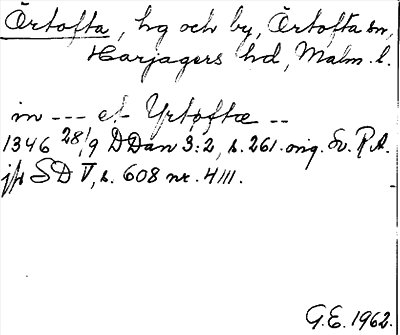 Örtofta, hg och by, Örtofta sn,
Harjagers hd, Malm. l.
in --- et Yrtoftæ --
1346 28/9 DDan 3:2, s. 261. orig. Sv. R.A.
jfr SD V, s. 608 nr. 4111.
G.E. 1962.